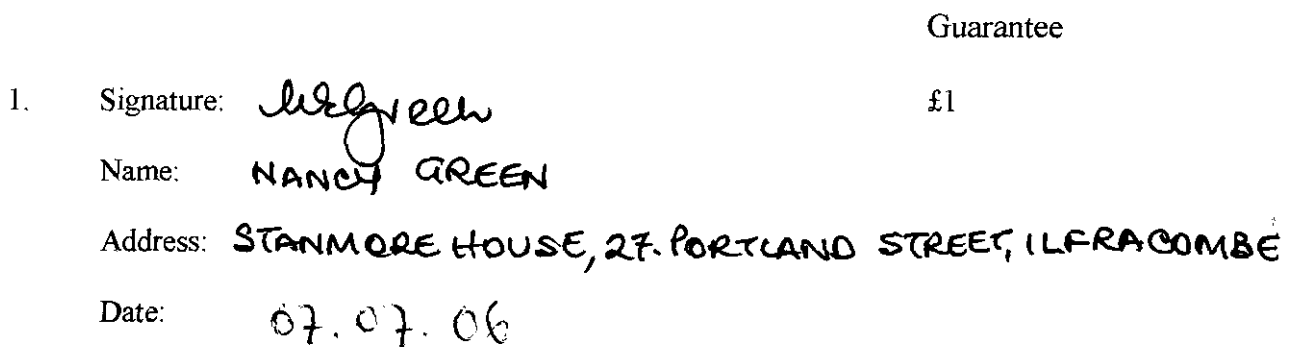 Guarantee
1. Signature: £1
Name: NANCY GREEN
Address: STANMORE HOUSE, 27. PORTLAND STREET, ILFRACOMBE
Date: 07.07.06